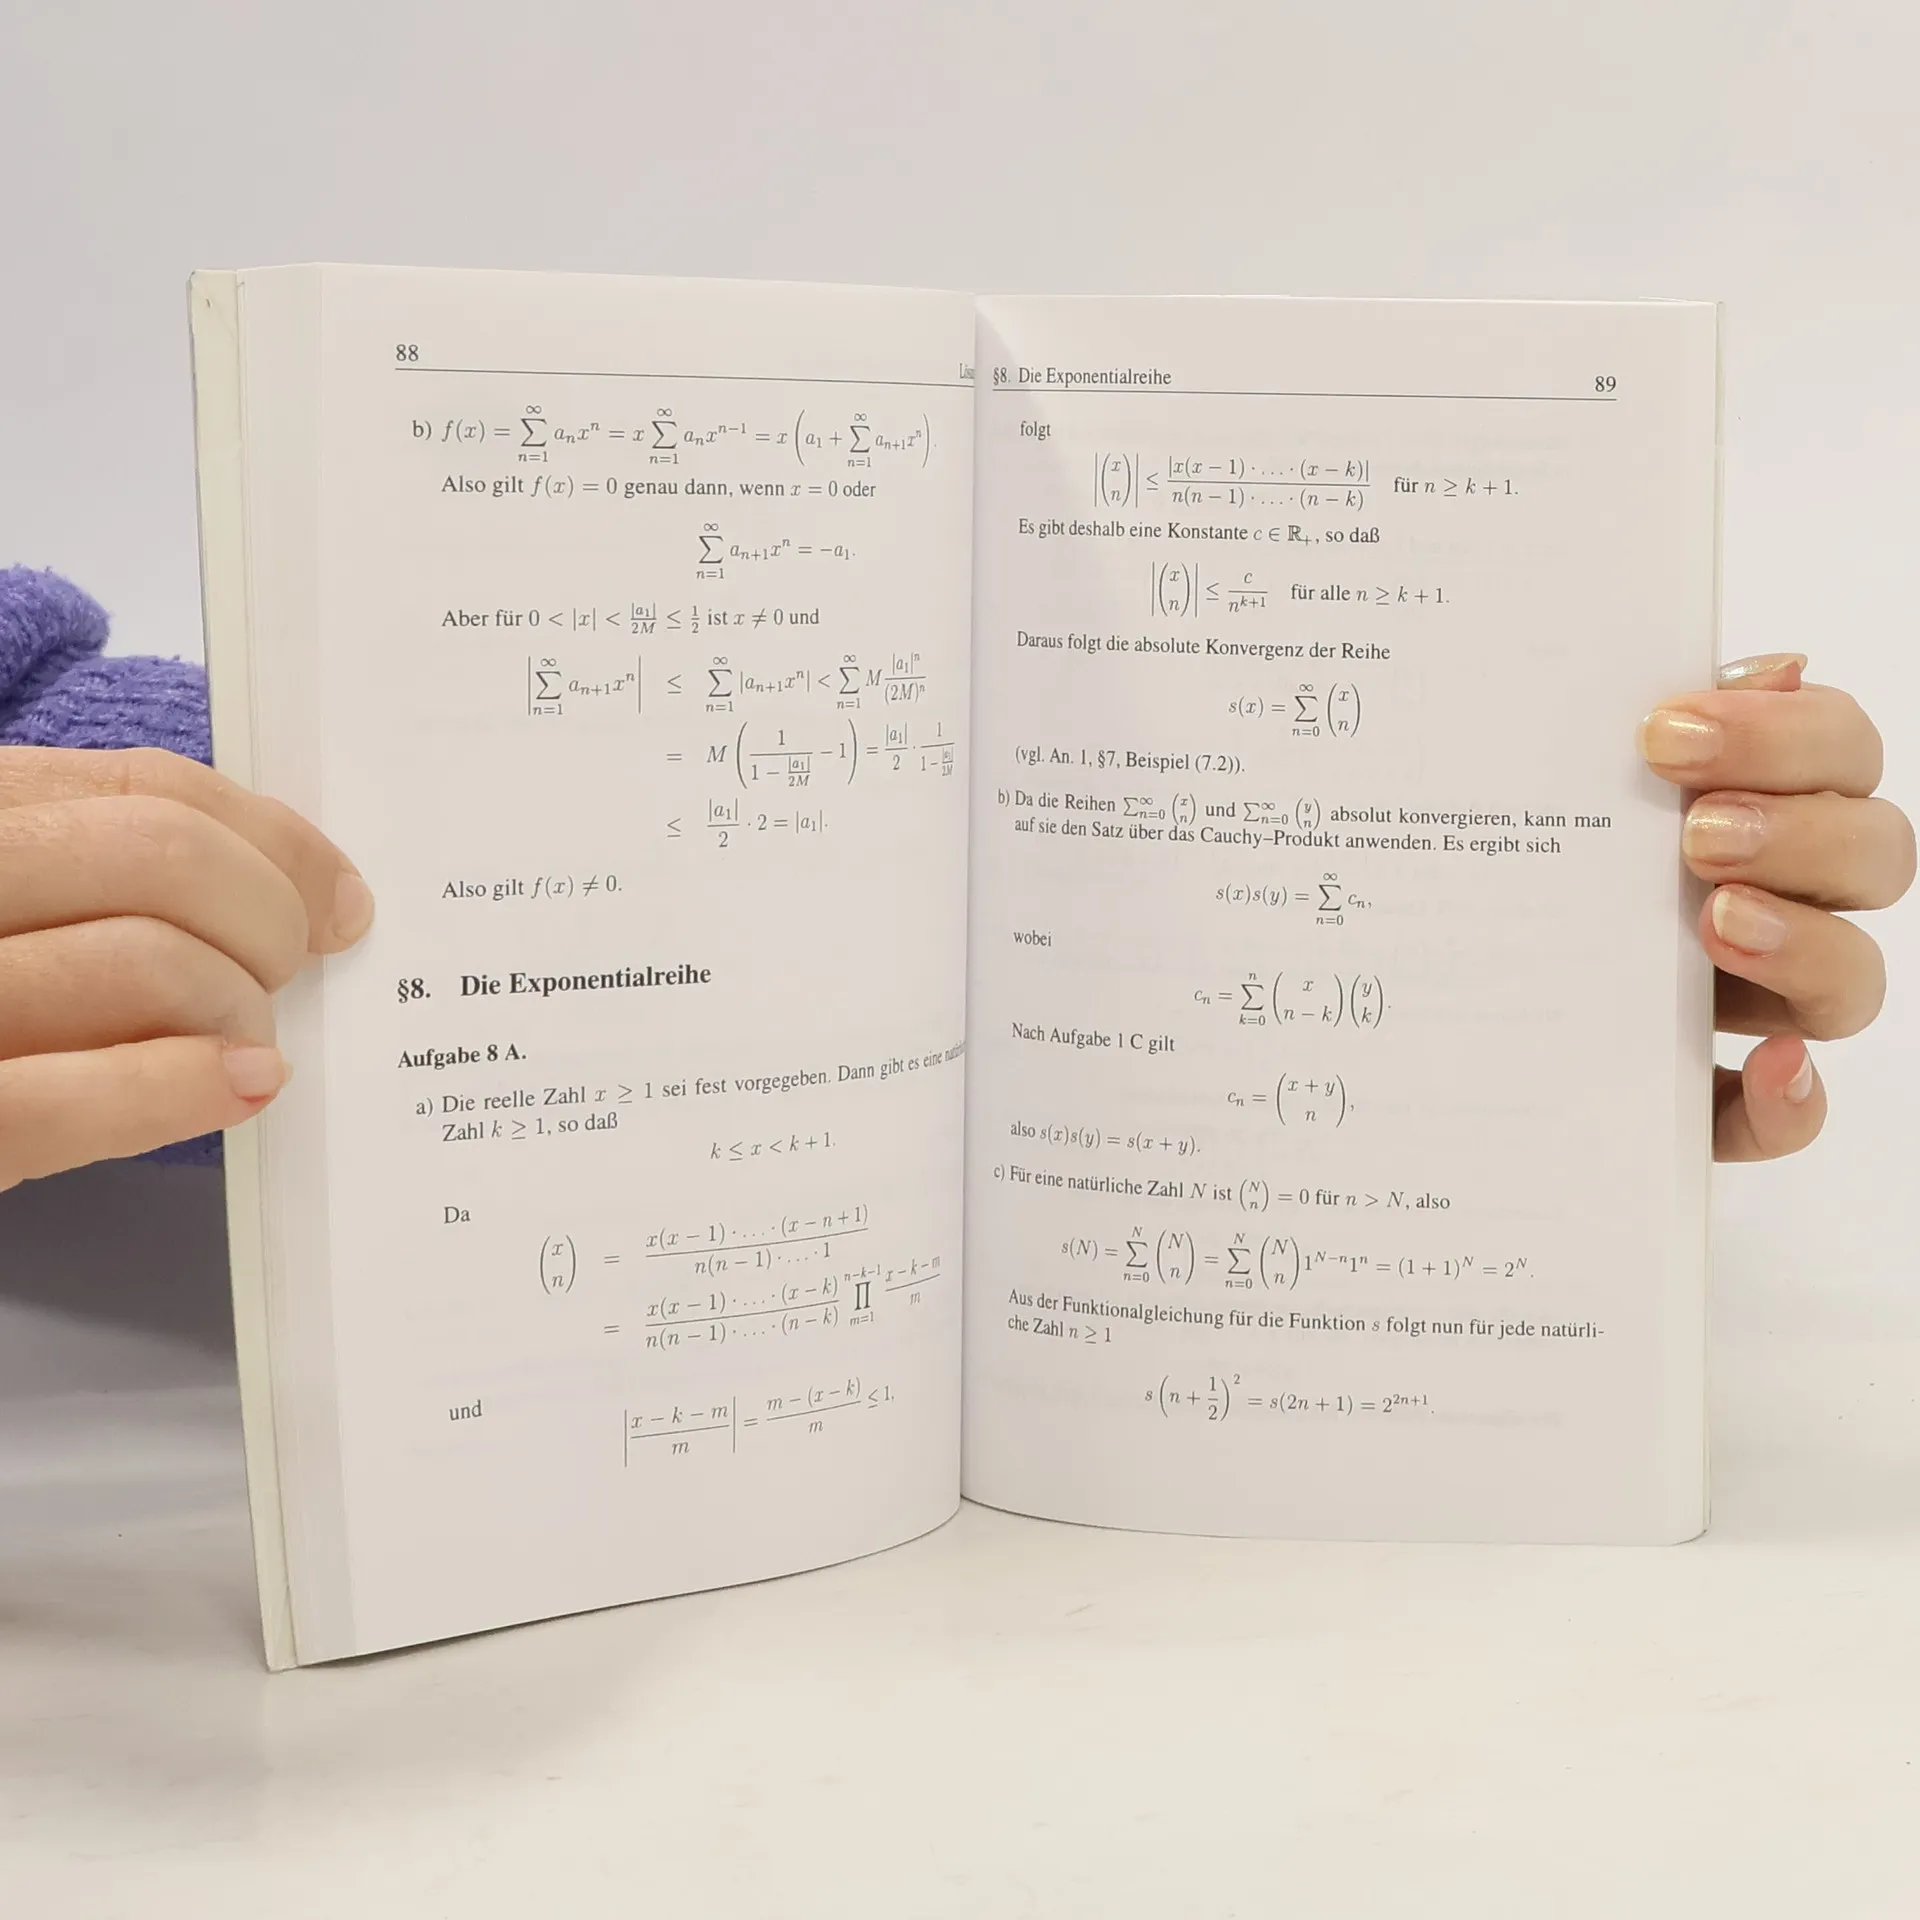 88
b) f(x) = ∑_{n=1}^{∞} a_n x^n = x ∑_{n=1}^{∞} a_n x^{n−1} = x (a_1 + ∑_{n=1}^{∞} a_{n+1} x^n).
Also gilt f(x) = 0 genau dann, wenn x = 0 oder
∑_{n=1}^{∞} a_{n+1} x^n = −a_1.
Aber für 0 < |x| < |a_1|/2M ≤ 1/2 ist x ≠ 0 und
|∑_{n=1}^{∞} a_{n+1} x^n| ≤ ∑_{n=1}^{∞} |a_{n+1} x^n| < ∑_{n=1}^{∞} M |a_1|^n/(2M)^n
= M (1/(1 − |a_1|/2M) − 1) = |a_1|/2 · 1/(1 − |a_1|/2M)
≤ |a_1|/2 · 2 = |a_1|.
Also gilt f(x) ≠ 0.
§8. Die Exponentialreihe
Aufgabe 8 A.
a) Die reelle Zahl x ≥ 1 sei fest vorgegeben. Dann gibt es eine
Zahl k ≥ 1, so daß
k ≤ x < k + 1.
Da
(x n) = x(x − 1) · … · (x − n + 1)/n(n − 1) · … · 1
= x(x − 1) · … · (x − k)/n(n − 1) · … · (n − k) ∏_{m=1}^{n−k−1} (x − k − m)/m
und
|(x − k − m)/m| = (m − (x − k))/m ≤ 1,
§8. Die Exponentialreihe 89
folgt
|(x n)| ≤ |x(x − 1) · … · (x − k)|/n(n − 1) · … · (n − k) für n ≥ k + 1.
Es gibt deshalb eine Konstante c ∈ ℝ_+, so daß
|(x n)| ≤ c/n^{k+1} für alle n ≥ k + 1.
Daraus folgt die absolute Konvergenz der Reihe
s(x) = ∑_{n=0}^{∞} (x n)
(vgl. An. 1, §7, Beispiel (7.2)).
b) Da die Reihen ∑_{n=0}^{∞} (x n) und ∑_{n=0}^{∞} (y n) absolut konvergieren, kann man
auf sie den Satz über das Cauchy–Produkt anwenden. Es ergibt sich
s(x)s(y) = ∑_{n=0}^{∞} c_n,
wobei
c_n = ∑_{k=0}^{n} (x n − k)(y k).
Nach Aufgabe 1 C gilt
c_n = (x + y n),
also s(x)s(y) = s(x + y).
c) Für eine natürliche Zahl N ist (N n) = 0 für n > N, also
s(N) = ∑_{n=0}^{N} (N n) = ∑_{n=0}^{N} (N n) 1^{N−n} 1^n = (1 + 1)^N = 2^N.
Aus der Funktionalgleichung für die Funktion s folgt nun für jede natürli-
che Zahl n ≥ 1
s(n + 1/2)^2 = s(2n + 1) = 2^{2n+1}.